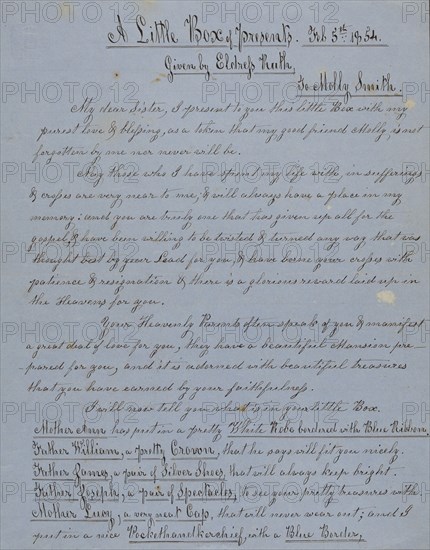 A Little Box of Presents. Feb 5th 1854.
Given by Eldress Ruth,
To Molly Smith.
My dear Sister, I present to you this little Box with my
purest love & blessing, as a token that my good friend Molly, is not
forgotten by me nor never will be.
Nay those who I have spent my life with, in sufferings
& crosses are very near to me, & will always have a place in my
memory: and you are truly one that has given up all for the
gospel, & have been willing to be twisted & turned any way that was
thought best by your Lead for you, & have borne your crosses with
patience & resignation & there is a glorious reward laid up in
the Heavens for you.
Your Heavenly Parents often speak of you & manifest
a great deal of love for you, they have a beautiful Mansion pre
pared for you, and it is adorned with beautiful treasures
that you have earned by your faithfulness.
I will now tell you what is in your little Box.
Mother Ann has put in a pretty White Robe bordered with Blue Ribbon.
Father William, a pretty Crown, that he says will fit you nicely.
Father James, a pair of Silver Shoes, that will always keep bright.
Father Joseph, a pair of Spectacles, to see your pretty treasures with.
Mother Lucy, a very neat Cap, that will never wear out; and I
put in a nice Pockethandkerchief, with a Blue Border,
PHOTO 12